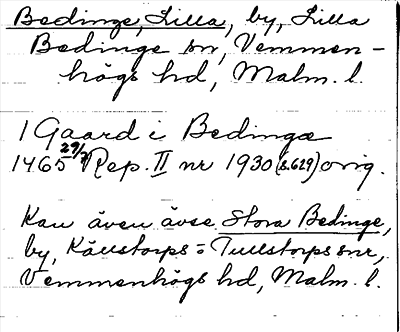 Bedinge, Lilla, by, Lilla
Bedinge sn, Vemmen-
högs hd, Malm. l.
1 Gaard i Bedinge
1465 29/7 Rep. II nr 1930 (s. 629) orig.
Kan även avse Stora Bedinge,
by, Källstorps = Tullstorps snr,
Vemmenhögs hd, Malm. l.